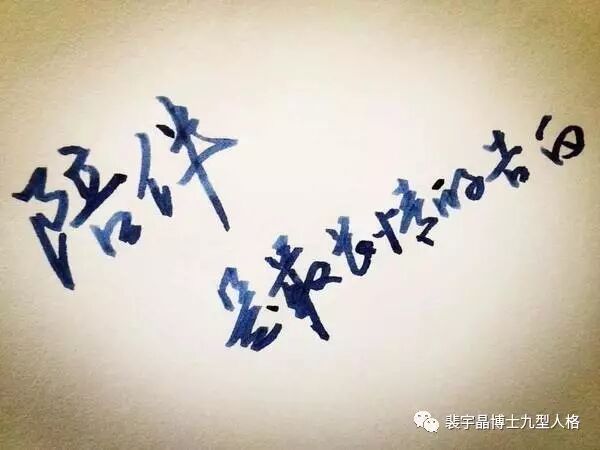 陪伴
是最长情的告白
裴宇晶博士九型人格